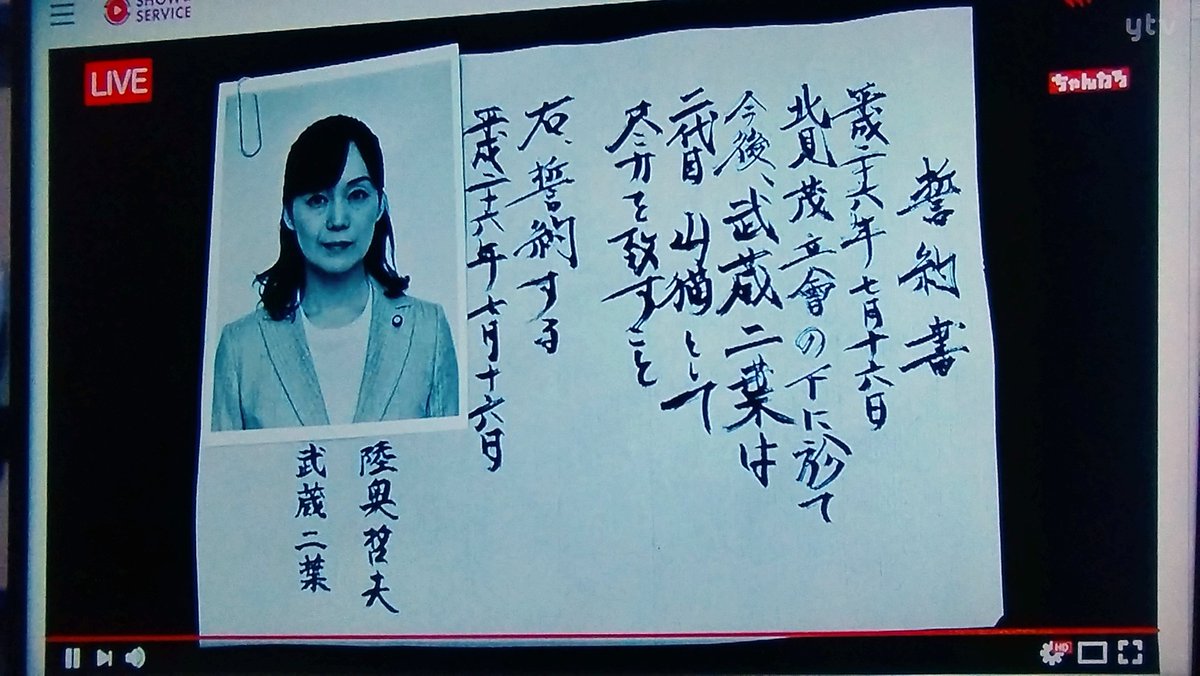 SERVICE
ytv
LIVE
ちゃんねる
誓約書
平成二十六年七月十六日
北見茂立會の下に於て
今後、武蔵二葉は
二代目 山猫として
尽力を致すこと
右、誓約する
平成二十六年七月十六日
陸奥哲夫
武蔵二葉
HD